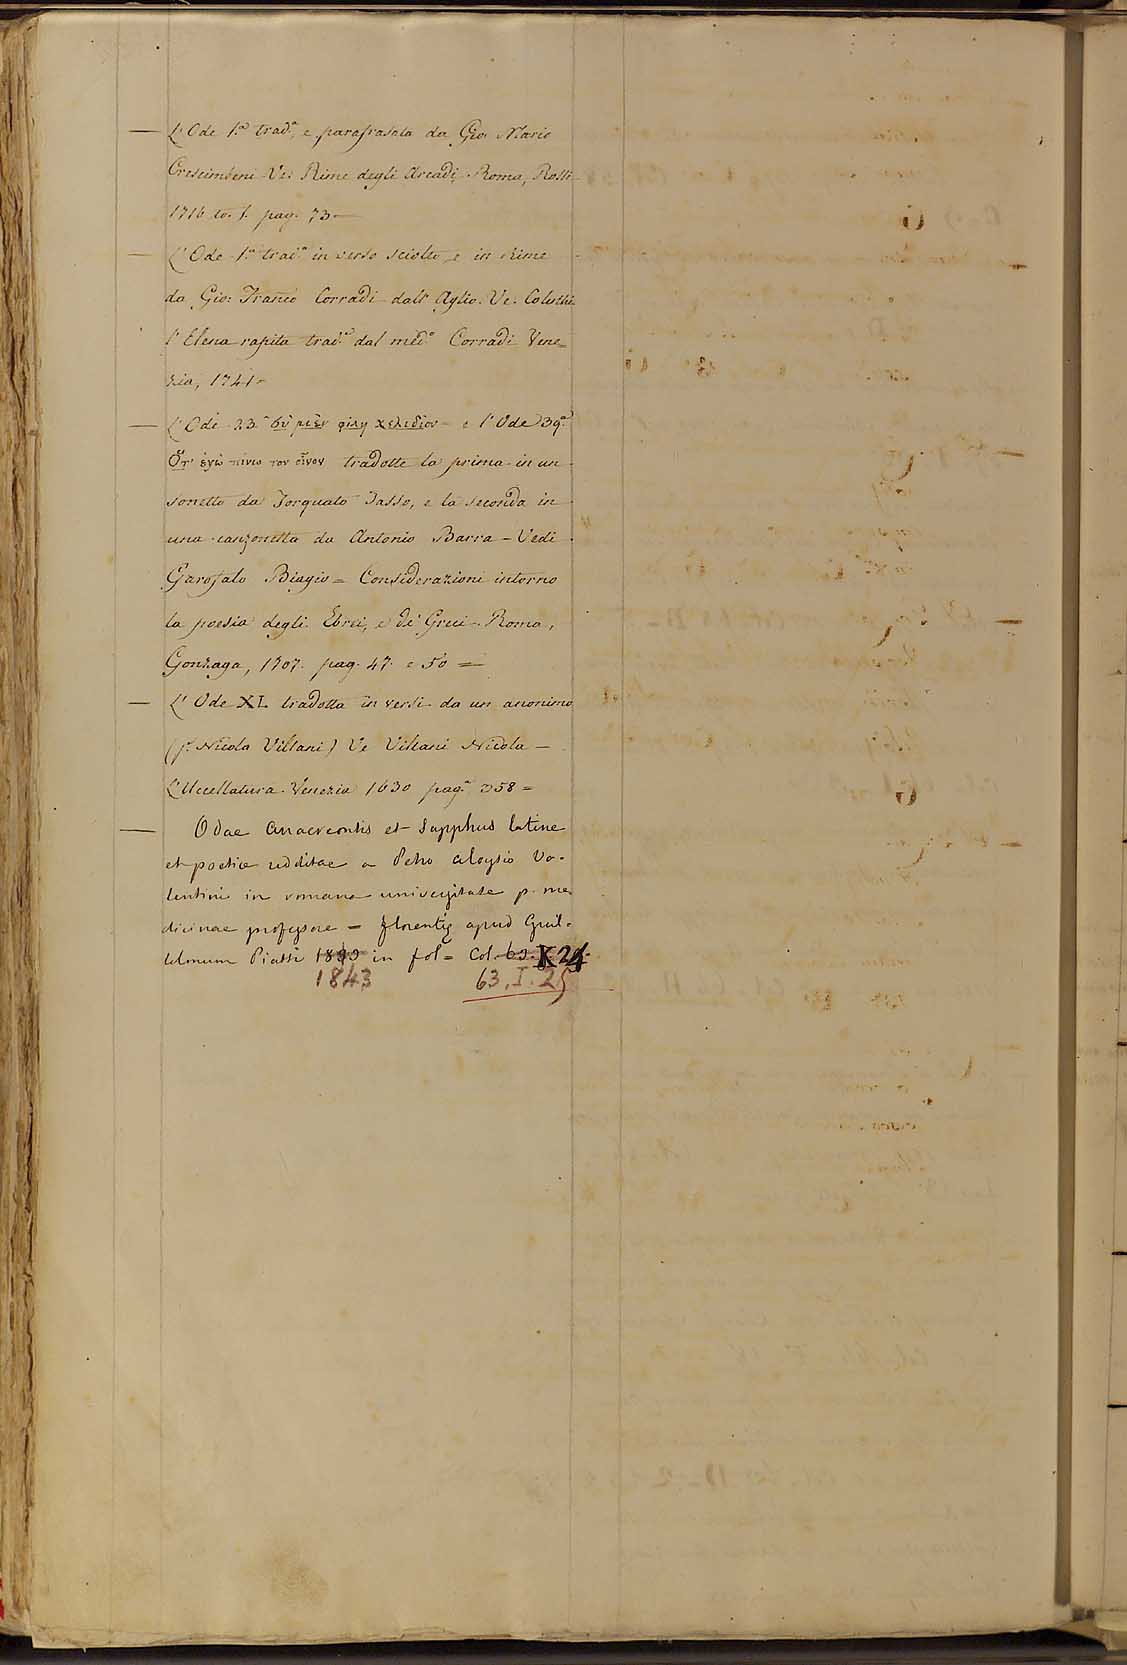 — L'Ode 1.ª trad.ª e parafrasata da Gio. Mario
Crescimbeni Ve: Rime degli Arcadi. Roma, Rossi
1716 to. 1. pag. 73 —
— L'Ode 1.ª trad.ª in verso sciolto e in rime
da Gio: Franco Corradi dall' Aglio. Ve: Coluthi
l'Elena rapita trad.ª dal med.º Corradi Vene=
zia, 1741 =
— L'Ode 23.ª σὺ μὲν φίλη χελιδὼν = e l'Ode 39.ª
Ὅτ' ἐγὼ πίνω τον οἶνον tradotte la prima in un
sonetto da Torquato Tasso, e la seconda in
una canzonetta da Antonio Barra – Vedi
Garofalo Biagio = Considerazioni intorno
la poesia degli Ebrei, e de' Greci. Roma,
Gonzaga, 1707. pag. 47. e 50 =
— L'Ode XL tradotta in versi da un anonimo
(f. Nicola Villani) Ve Villani Nicola —
L'Uccellatura. Venezia 1630 pag.ª 258 =
— Odae Anacreontis et Sapphus latine
et poetice redditae a Petro Aloysio Va-
lentini in romana universitate p. me
dicinae professore = florentię apud Guil-
lelmum Piatti 1893 in fol = Col. 63. K 24.
1843 63. I. 25